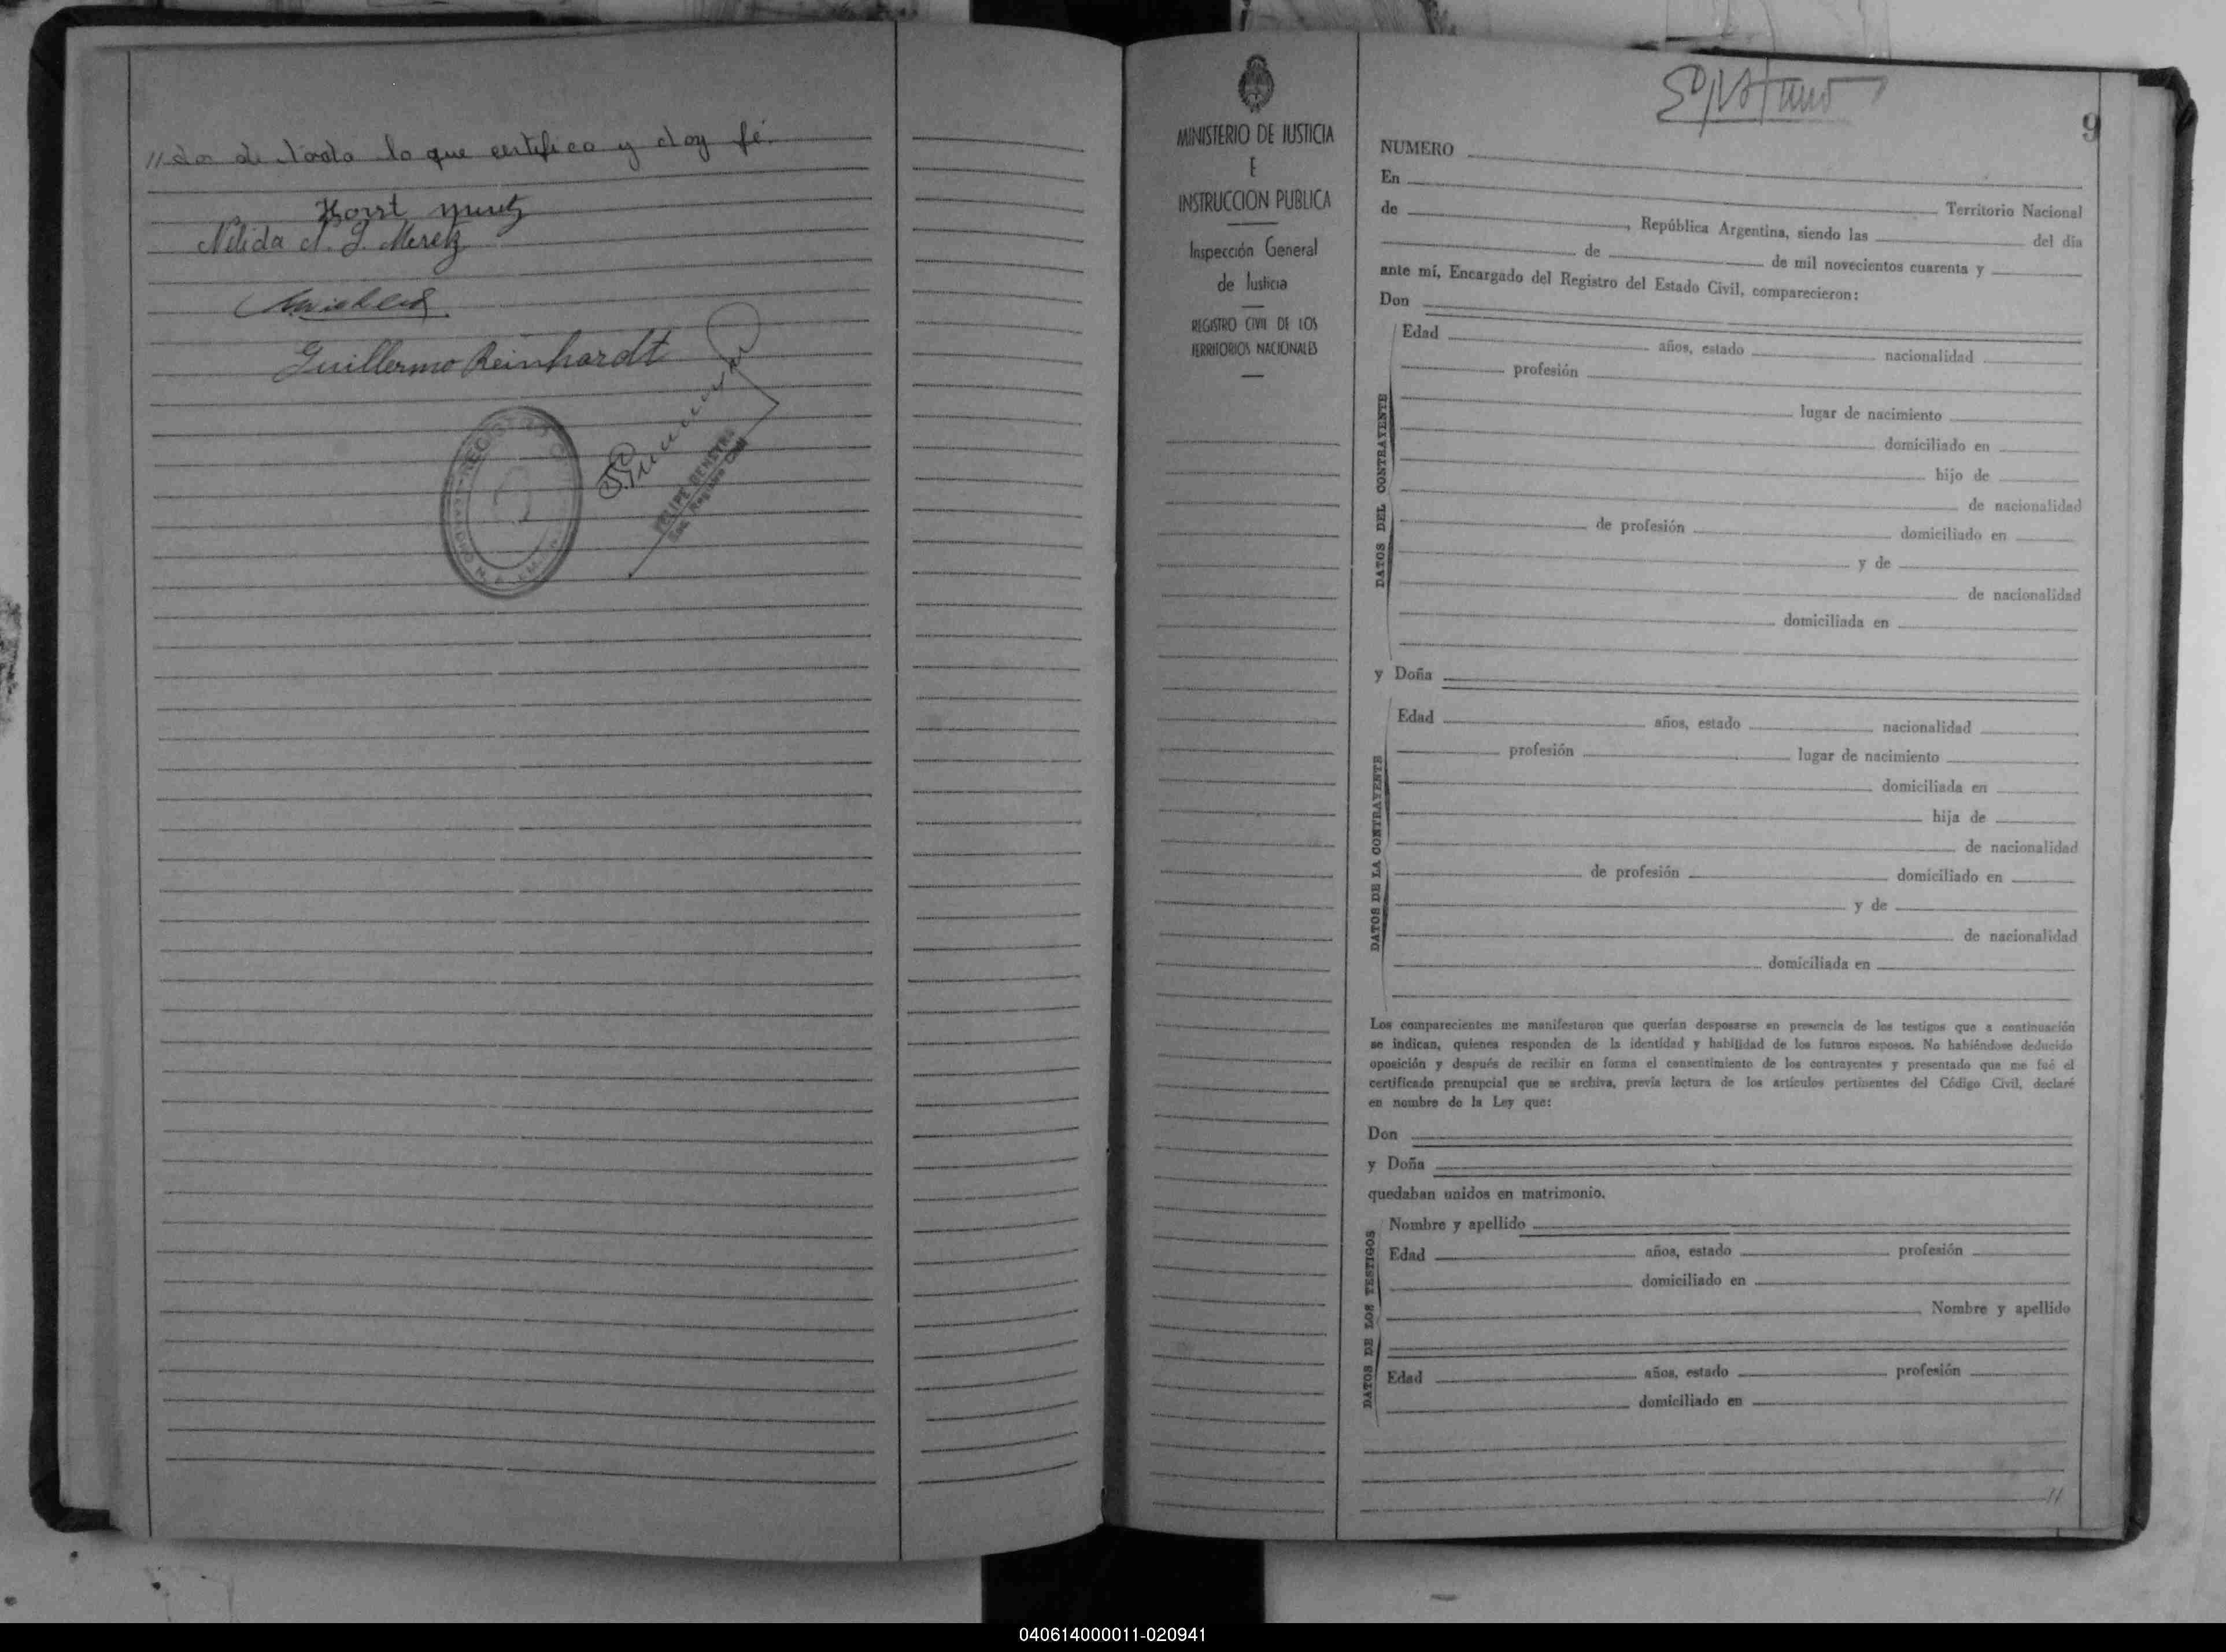 //do de todo lo que certifico y doy fé.
Horst Meretz
Nélida N. G. Meretz
Guillermo Reinhardt
FELIPE BENEYRO
Registro Civil
MINISTERIO DE JUSTICIA
E
INSTRUCCION PUBLICA
Inspección General
de Justicia
REGISTRO CIVIL DE LOS
TERRITORIOS NACIONALES
9
NUMERO
En Territorio Nacional
de , República Argentina, siendo las del día
de de mil novecientos cuarenta y
ante mí, Encargado del Registro del Estado Civil, comparecieron:
Don
DATOS DEL CONTRAYENTE
Edad años, estado nacionalidad
profesión
lugar de nacimiento
domiciliado en
hijo de
de nacionalidad
de profesión domiciliado en
y de
de nacionalidad
domiciliada en
y Doña
DATOS DE LA CONTRAYENTE
Edad años, estado nacionalidad
profesión lugar de nacimiento
domiciliada en
hija de
de nacionalidad
de profesión domiciliado en
y de
de nacionalidad
domiciliada en
Los comparecientes me manifestaron que querían desposarse en presencia de los testigos que a continuación
se indican, quienes responden de la identidad y habilidad de los futuros esposos. No habiéndose deducido
oposición y después de recibir en forma el consentimiento de los contrayentes y presentado que me fué el
certificado prenupcial que se archiva, previa lectura de los artículos pertinentes del Código Civil, declaré
en nombre de la Ley que:
Don
y Doña
quedaban unidos en matrimonio.
DATOS DE LOS TESTIGOS
Nombre y apellido
Edad años, estado profesión
domiciliado en
Nombre y apellido
Edad años, estado profesión
domiciliado en
//
040614000011-020941